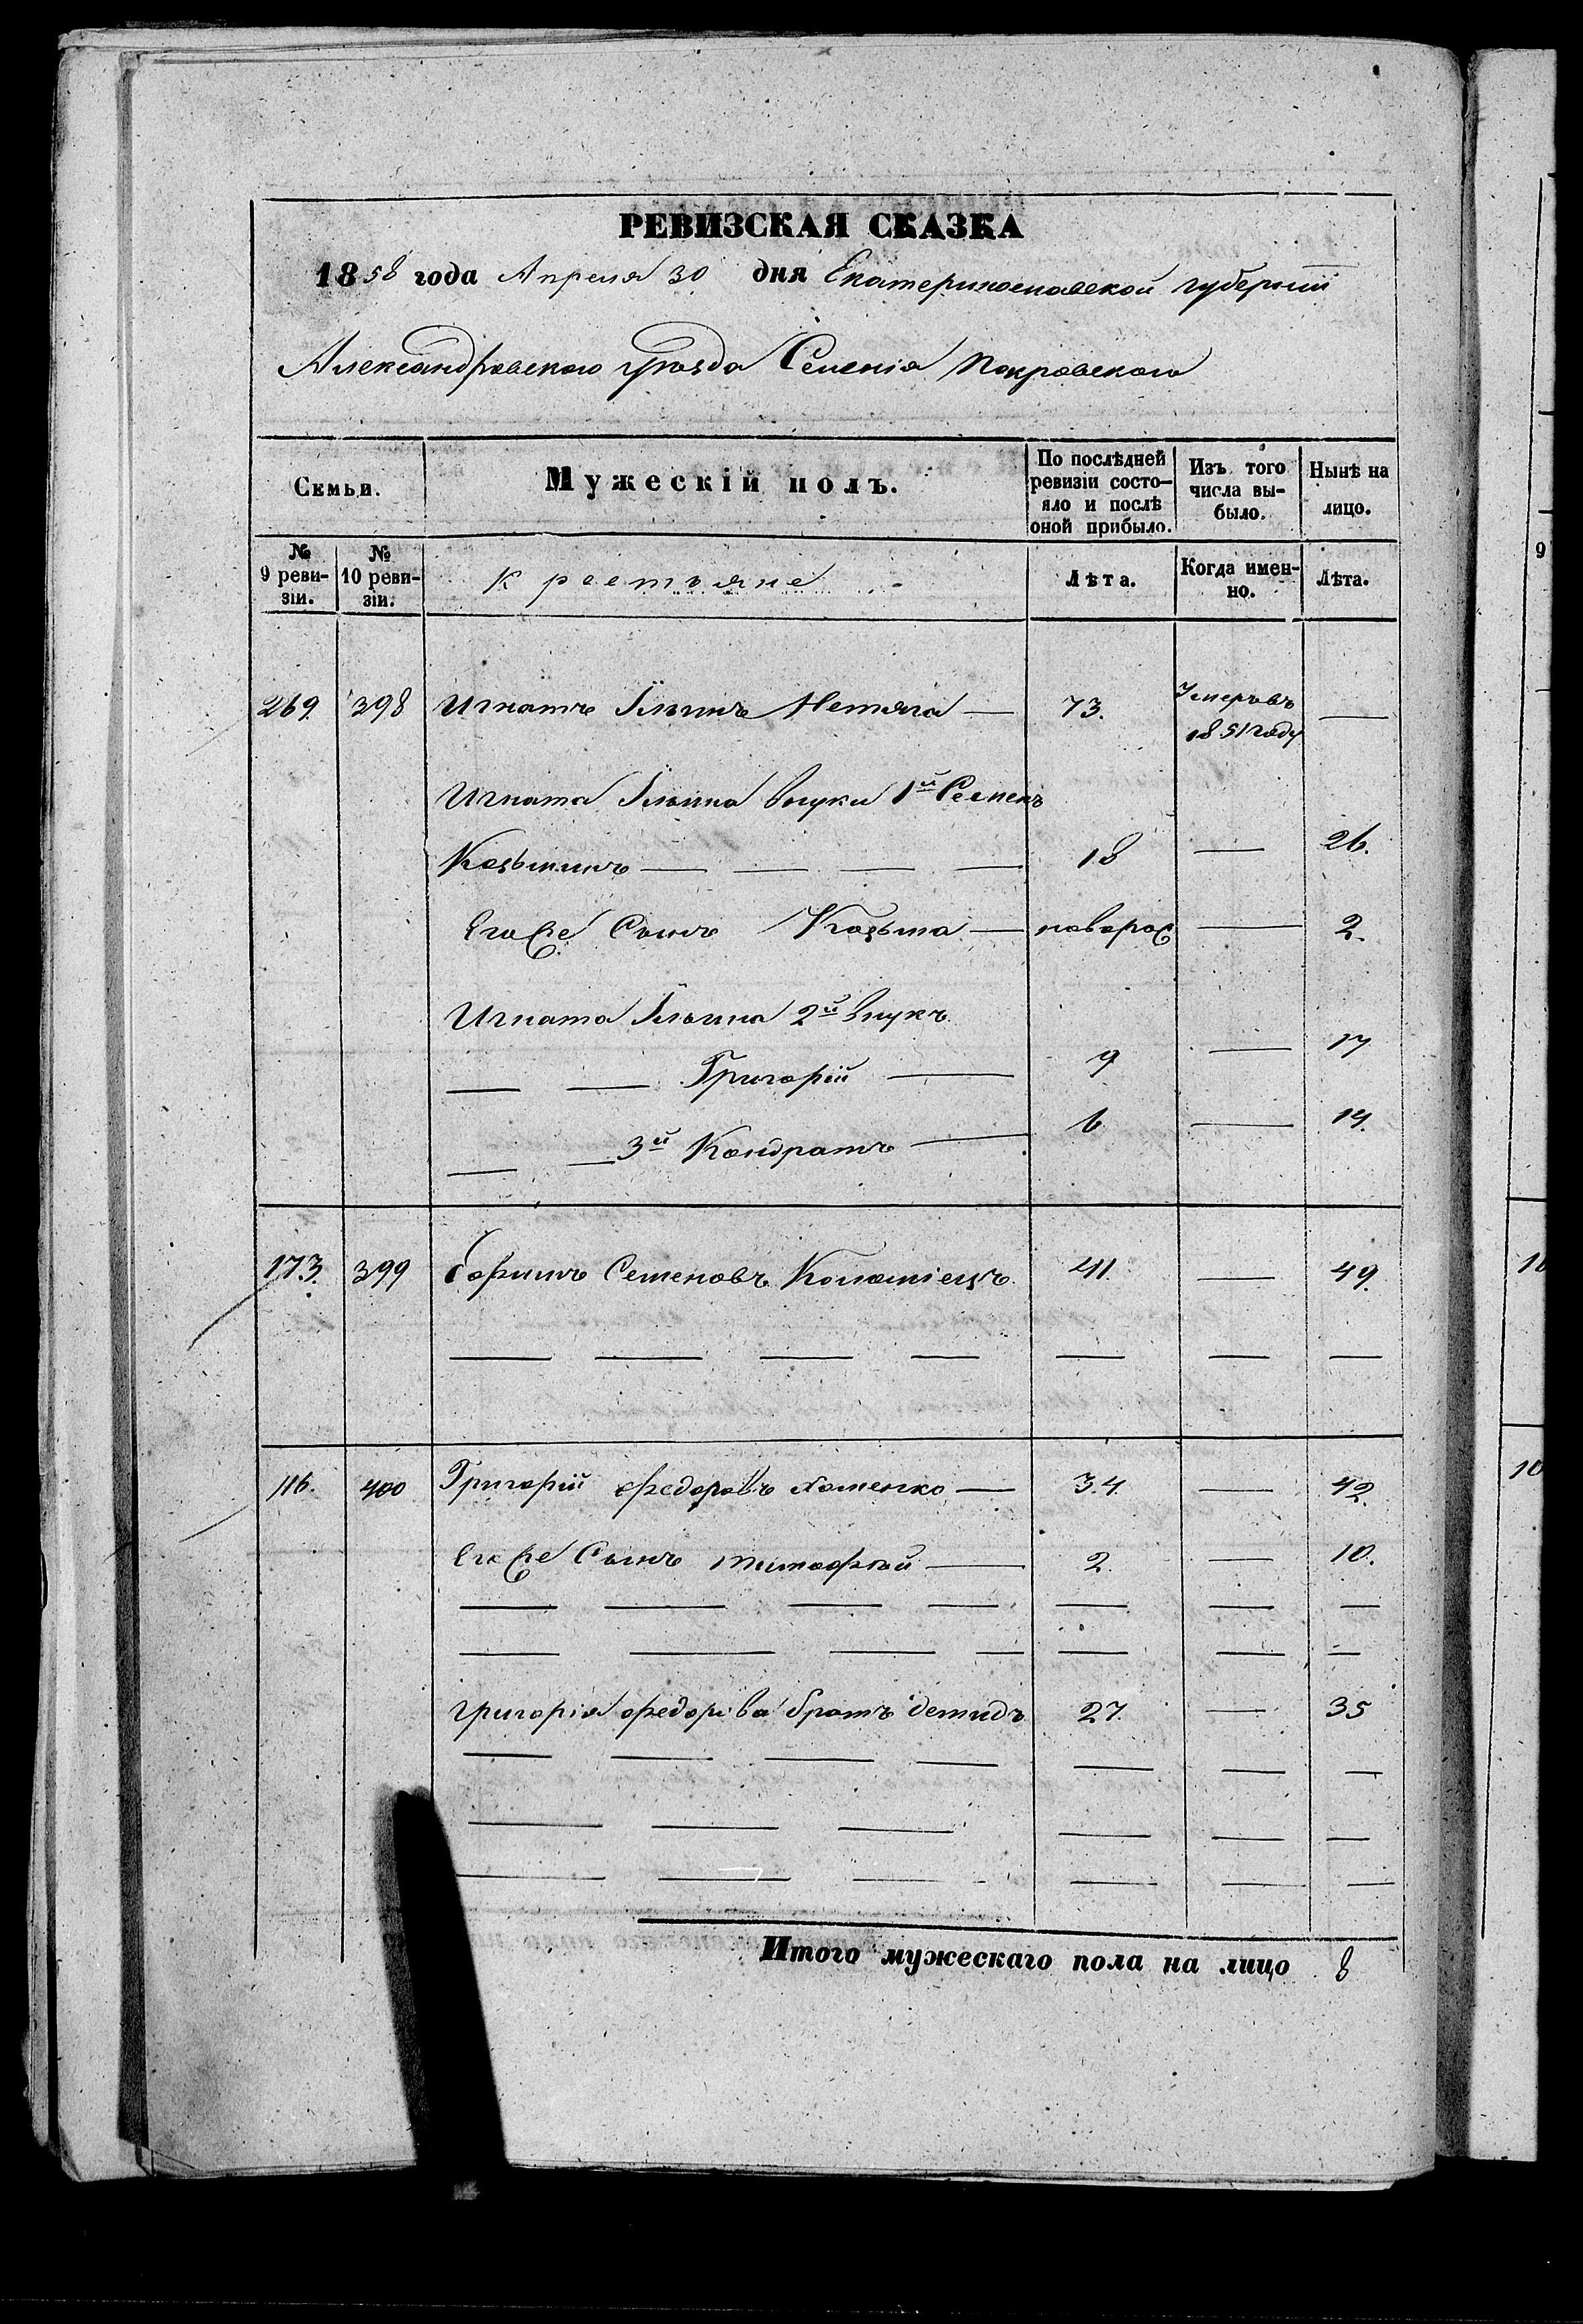 РЕВИЗСКАЯ СКАЗКА
1858 года Апреля 30 дня Екатеринославской губернии
Александровского уѣзда Селенія Покровского
Семьи.
Мужескій полъ.
По послѣдней ревизіи состо-яло и послѣ оной прибыло.
Изъ того числа вы-было.
Нынѣ на лицо.
№ 9 реви-зіи.
№ 10 реви-зіи.
Крестьяне
Лѣта.
Когда имен-но.
Лѣта.
269. 398 Игнатъ Ильинъ Нетяга — 73. Умеръ въ 1851 году —
Игната Ильина внуки 1й Семенъ
Козьминъ — — — — 18 — 26.
Его Сынъ Козьма — новорож — 2.
Игната Ильина 2й внукъ
— — Григорій — 9 — 17
— — 3й Кондратъ — 6 — 14.
173. 399 Семеновъ Коломіецъ 41. — 49.
— — — — — — —
116. 400 Григорій Федоровъ Хоменко — 34. — 42.
Сынъ Тимофѣй — 2. — 10.
— — — — — — —
— — — — — — —
Григорія Федорова братъ Демидъ 27. — 35
— — — — — — —
— — — — — —
— — — — — —
Итого мужескаго пола на лицо 8
9
10